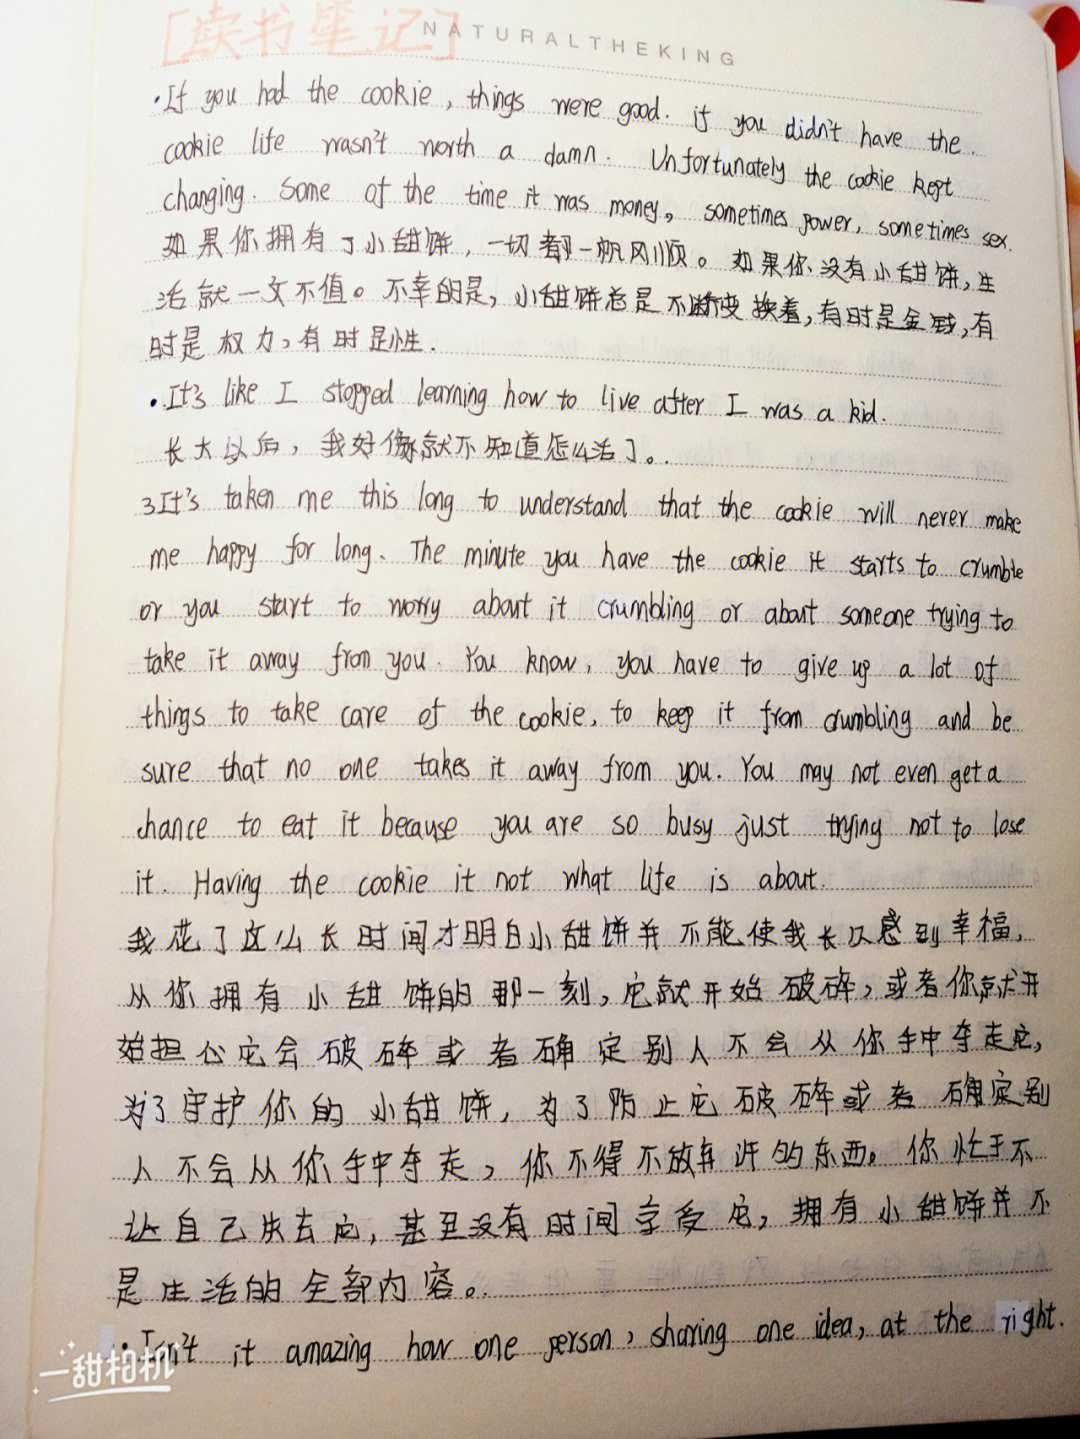 [读书笔记]
NATURALTHEKING
·If you had the cookie, things were good. if you didn't have the
cookie life wasn't worth a damn. Unfortunately the cookie kept
changing. Some of the time it was money, sometimes power, sometimes sex.
如果你拥有了小甜饼，一切都一帆风顺。如果你没有小甜饼，生
活就一文不值。不幸的是，小甜饼总是不断变换着，有时是金钱，有
时是权力，有时是性.
·It's like I stopped learning how to live after I was a kid.
长大以后，我好像就不知道怎么活了。
3It's taken me this long to understand that the cookie will never make
me happy for long. The minute you have the cookie it starts to crumble
or you start to worry about it crumbling or about someone trying to
take it away from you. You know, you have to give up a lot of
things to take care of the cookie, to keep it from crumbling and be
sure that no one takes it away from you. You may not even get a
chance to eat it because you are so busy just trying not to lose
it. Having the cookie it not what life is about.
我花了这么长时间才明白小甜饼并不能使我长久感到幸福，
从你拥有小甜饼的那一刻，它就开始破碎，或者你就开
始担心它会破碎或者确定别人不会从你手中夺走它，
为了守护你的小甜饼，为了防止它破碎或者确定别
人不会从你手中夺走，你不得不放弃许多东西。你忙于不
让自己失去它，甚至没有时间享受它，拥有小甜饼并不
是生活的全部内容。
·Isn't it amazing how one person, sharing one idea, at the right.
一甜相机